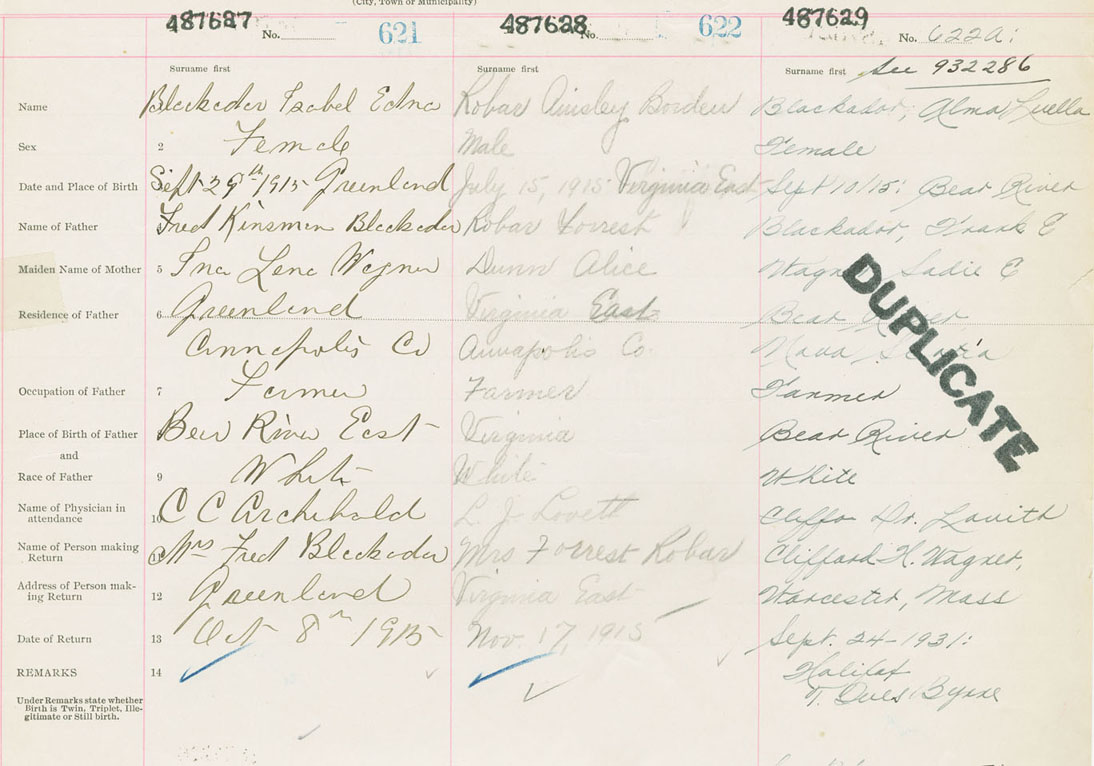 (City, Town or Municipality)
487627 No. 621
487628 No. 622
487629 No. 622a:
See 932286
Surname first Surname first Surname first
Name Blackader Isabel Edna Robar Ainsley Borden Blackador, Alma Luella
Sex 2 Female Male Female
Date and Place of Birth Sept 29th 1915 Greenland July 15, 1915 Virginia East Sept 10/15: Bear River
Name of Father Fred Kinsman Blackader Robar Forrest Blackador, Frank E
Maiden Name of Mother 5 Ina Lena Wagner Dunn Alice Wagner Sadie E
Residence of Father 6 Greenland Virginia East Bear River,
Annapolis Co Annapolis Co. Nova Scotia
DUPLICATE
Occupation of Father 7 Farmer Farmer Farmer
Place of Birth of Father Bear River East Virginia Bear River
and
Race of Father 9 White White White
Name of Physician in
attendance 10 C C Archibald L. J. Lovett Dr.
Name of Person making
Return 11 Mrs Fred Blackader Mrs Forrest Robar Clifford H. Wagner,
Address of Person mak-
ing Return 12 Greenland Virginia East Worcester, Mass
Date of Return 13 Oct 8th 1915 Nov. 17, 1915 Sept. 24-1931:
REMARKS 14 Halifax
Under Remarks state whether
Birth is Twin, Triplet, Ille-
gitimate or Still birth.
T. Ives Byrne